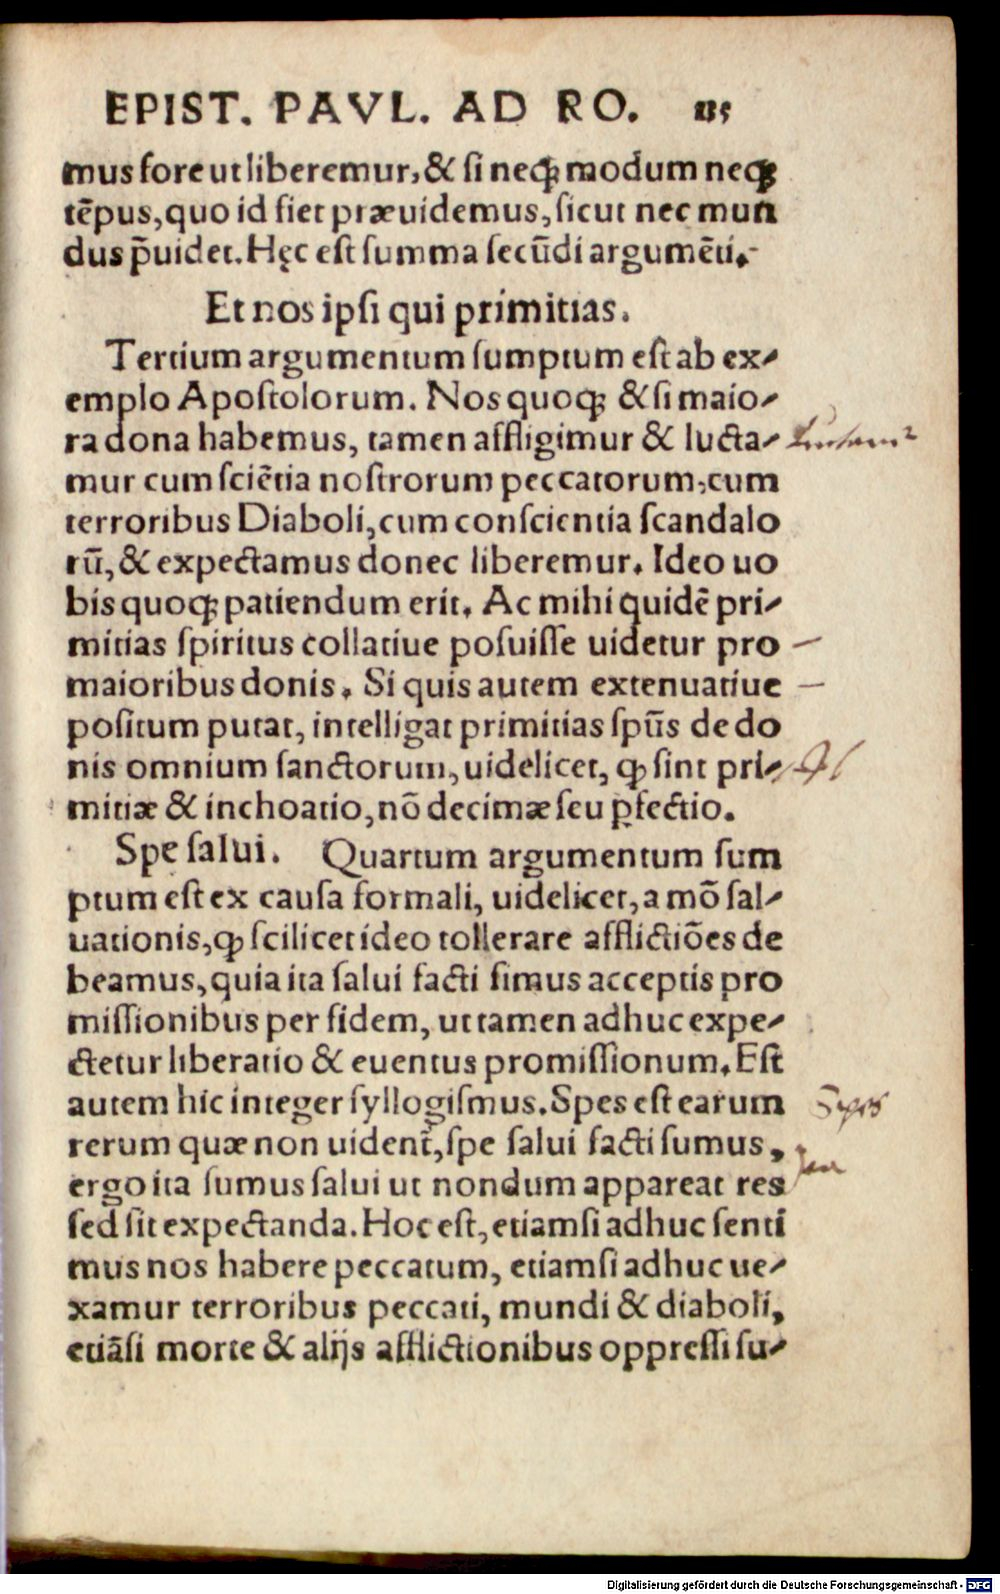 EPIST. PAVL. AD RO. 115
mus fore ut liberemur, & si neqꝫ modum neqꝫ
tēpus, quo id fiet præuidemus, sicut nec mun
dus p̄uidet. Hęc est summa secūdi argumēti.
Et nos ipsi qui primitias.
Tertium argumentum sumptum est ab ex-
emplo Apostolorum. Nos quoqꝫ & si maio-
ra dona habemus, tamen affligimur & lucta-
mur cum sciētia nostrorum peccatorum, cum
terroribus Diaboli, cum conscientia scandalo
rū, & expectamus donec liberemur. Ideo uo
bis quoqꝫ patiendum erit. Ac mihi quidē pri-
mitias spiritus collatiue posuisse uidetur pro
maioribus donis. Si quis autem extenuatiue
positum putat, intelligat primitias spūs de do
nis omnium sanctorum, uidelicet, ꝙ sint pri-
mitiæ & inchoatio, nō decimæ seu ꝑfectio.
Spe salui. Quartum argumentum sum
ptum est ex causa formali, uidelicet, a mō sal-
uationis, ꝙ scilicet ideo tollerare afflictiōes de
beamus, quia ita salui facti simus acceptis pro
missionibus per fidem, ut tamen adhuc expe-
ctetur liberatio & euentus promissionum. Est
autem hic integer syllogismus. Spes est earum
Spes
rerum quæ non uident̃, spe salui facti sumus,
ergo ita sumus salui ut nondum appareat res
sed sit expectanda. Hoc est, etiamsi adhuc senti
mus nos habere peccatum, etiamsi adhuc ue-
xamur terroribus peccati, mundi & diaboli,
etiāsi morte & alijs afflictionibus oppressi su-
Digitalisierung gefördert durch die Deutsche Forschungsgemeinschaft - DFG